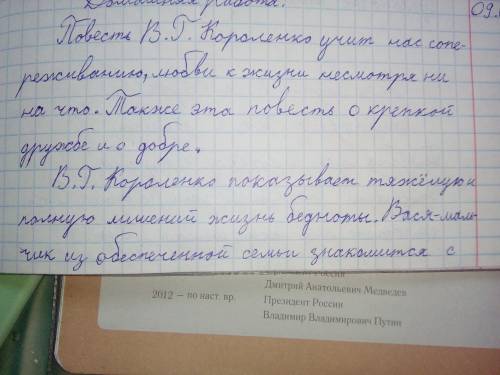 Домашняя работа.
09.
Повесть В.Г. Короленко учит нас сопе-
реживанию, любви к жизни несмотря ни
на что. Также эта повесть о крепкой
дружбе и о добре.
В.Г. Короленко показывает тяжёлую и
полную лишений жизнь бедноты. Вася-маль-
чик из обеспеченной семьи знакомится с
России
Дмитрий Анатольевич Медведев
2012 — по наст. вр.
Президент России
Владимир Владимирович Путин